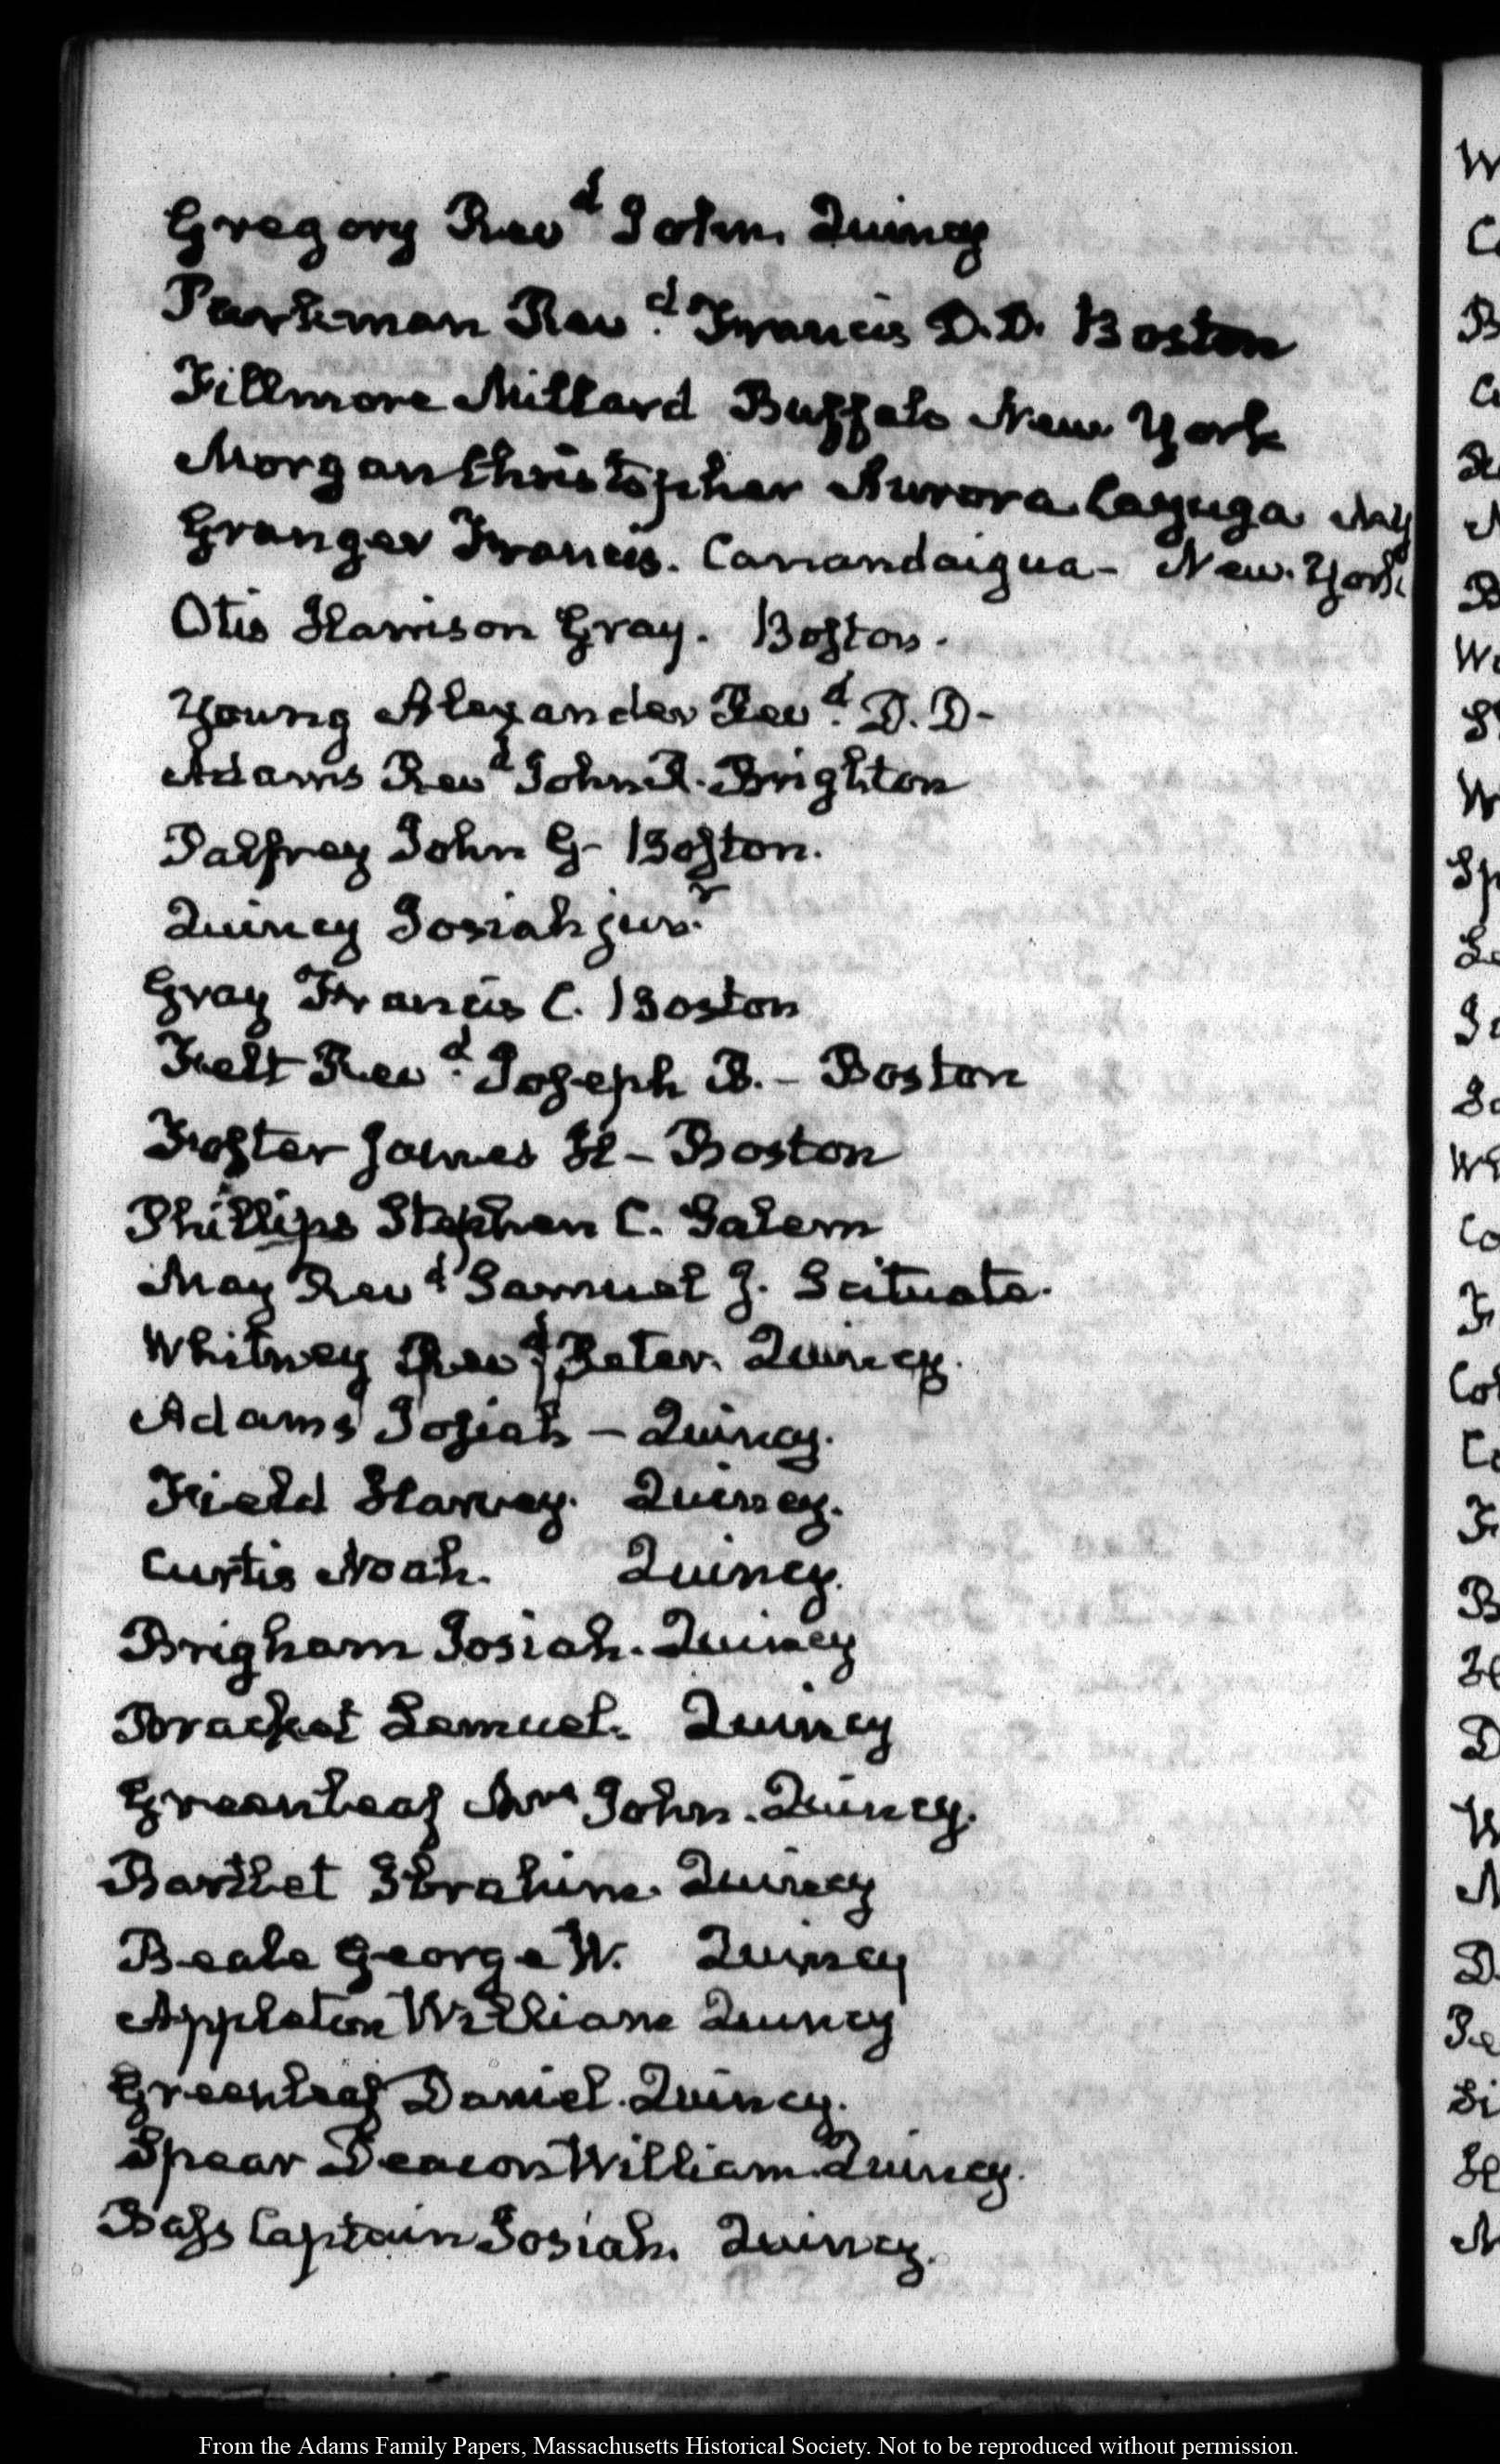 Gregory Revd John. Quincy
Parkman Revd. Francis D.D. Boston
Fillmore Millard Buffalo New York
Morgan Christopher Aurora. Cayuga NY
Granger Francis. Canandaigua- New. York
Otis Harrison Gray. Boston.
Young Alexander Revd. D.D-
Adams Revd John R. Brighton
Palfrey John G- Boston.
Quincy Josiah junr.
Gray Francis C. Boston
Felt Revd. Joseph B. - Boston
Foster James H - Boston
Phillips Stephen C. Salem
May Revd Samuel J. Scituate.
Whitney Revd Peter. Quincy.
Adams Josiah - Quincy.
Field Harvey. Quincy.
Curtis Noah. Quincy.
Brigham Josiah. Quincy
Bracket Lemuel. Quincy
Greenleaf Mrs John. Quincy.
Bartlet Ibrahim. Quincy
Beale George W. Quincy
Appleton William Quincy
Greenleaf Daniel. Quincy.
Spear Deacon William. Quincy.
Bass Captain Josiah. Quincy.
From the Adams Family Papers, Massachusetts Historical Society. Not to be reproduced without permission.